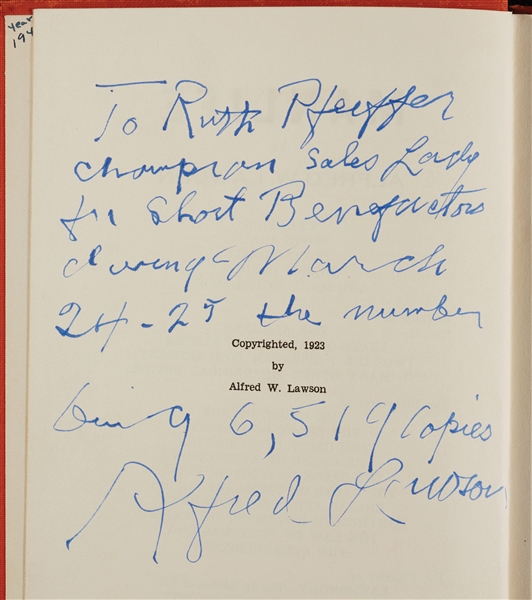 year
194
To Ruth Pfeiffer
champion Sales Lady
for Short Benefactors
during March
24-25 the number
Copyrighted, 1923
by
Alfred W. Lawson
being 6,519 Copies
Alfred Lawson